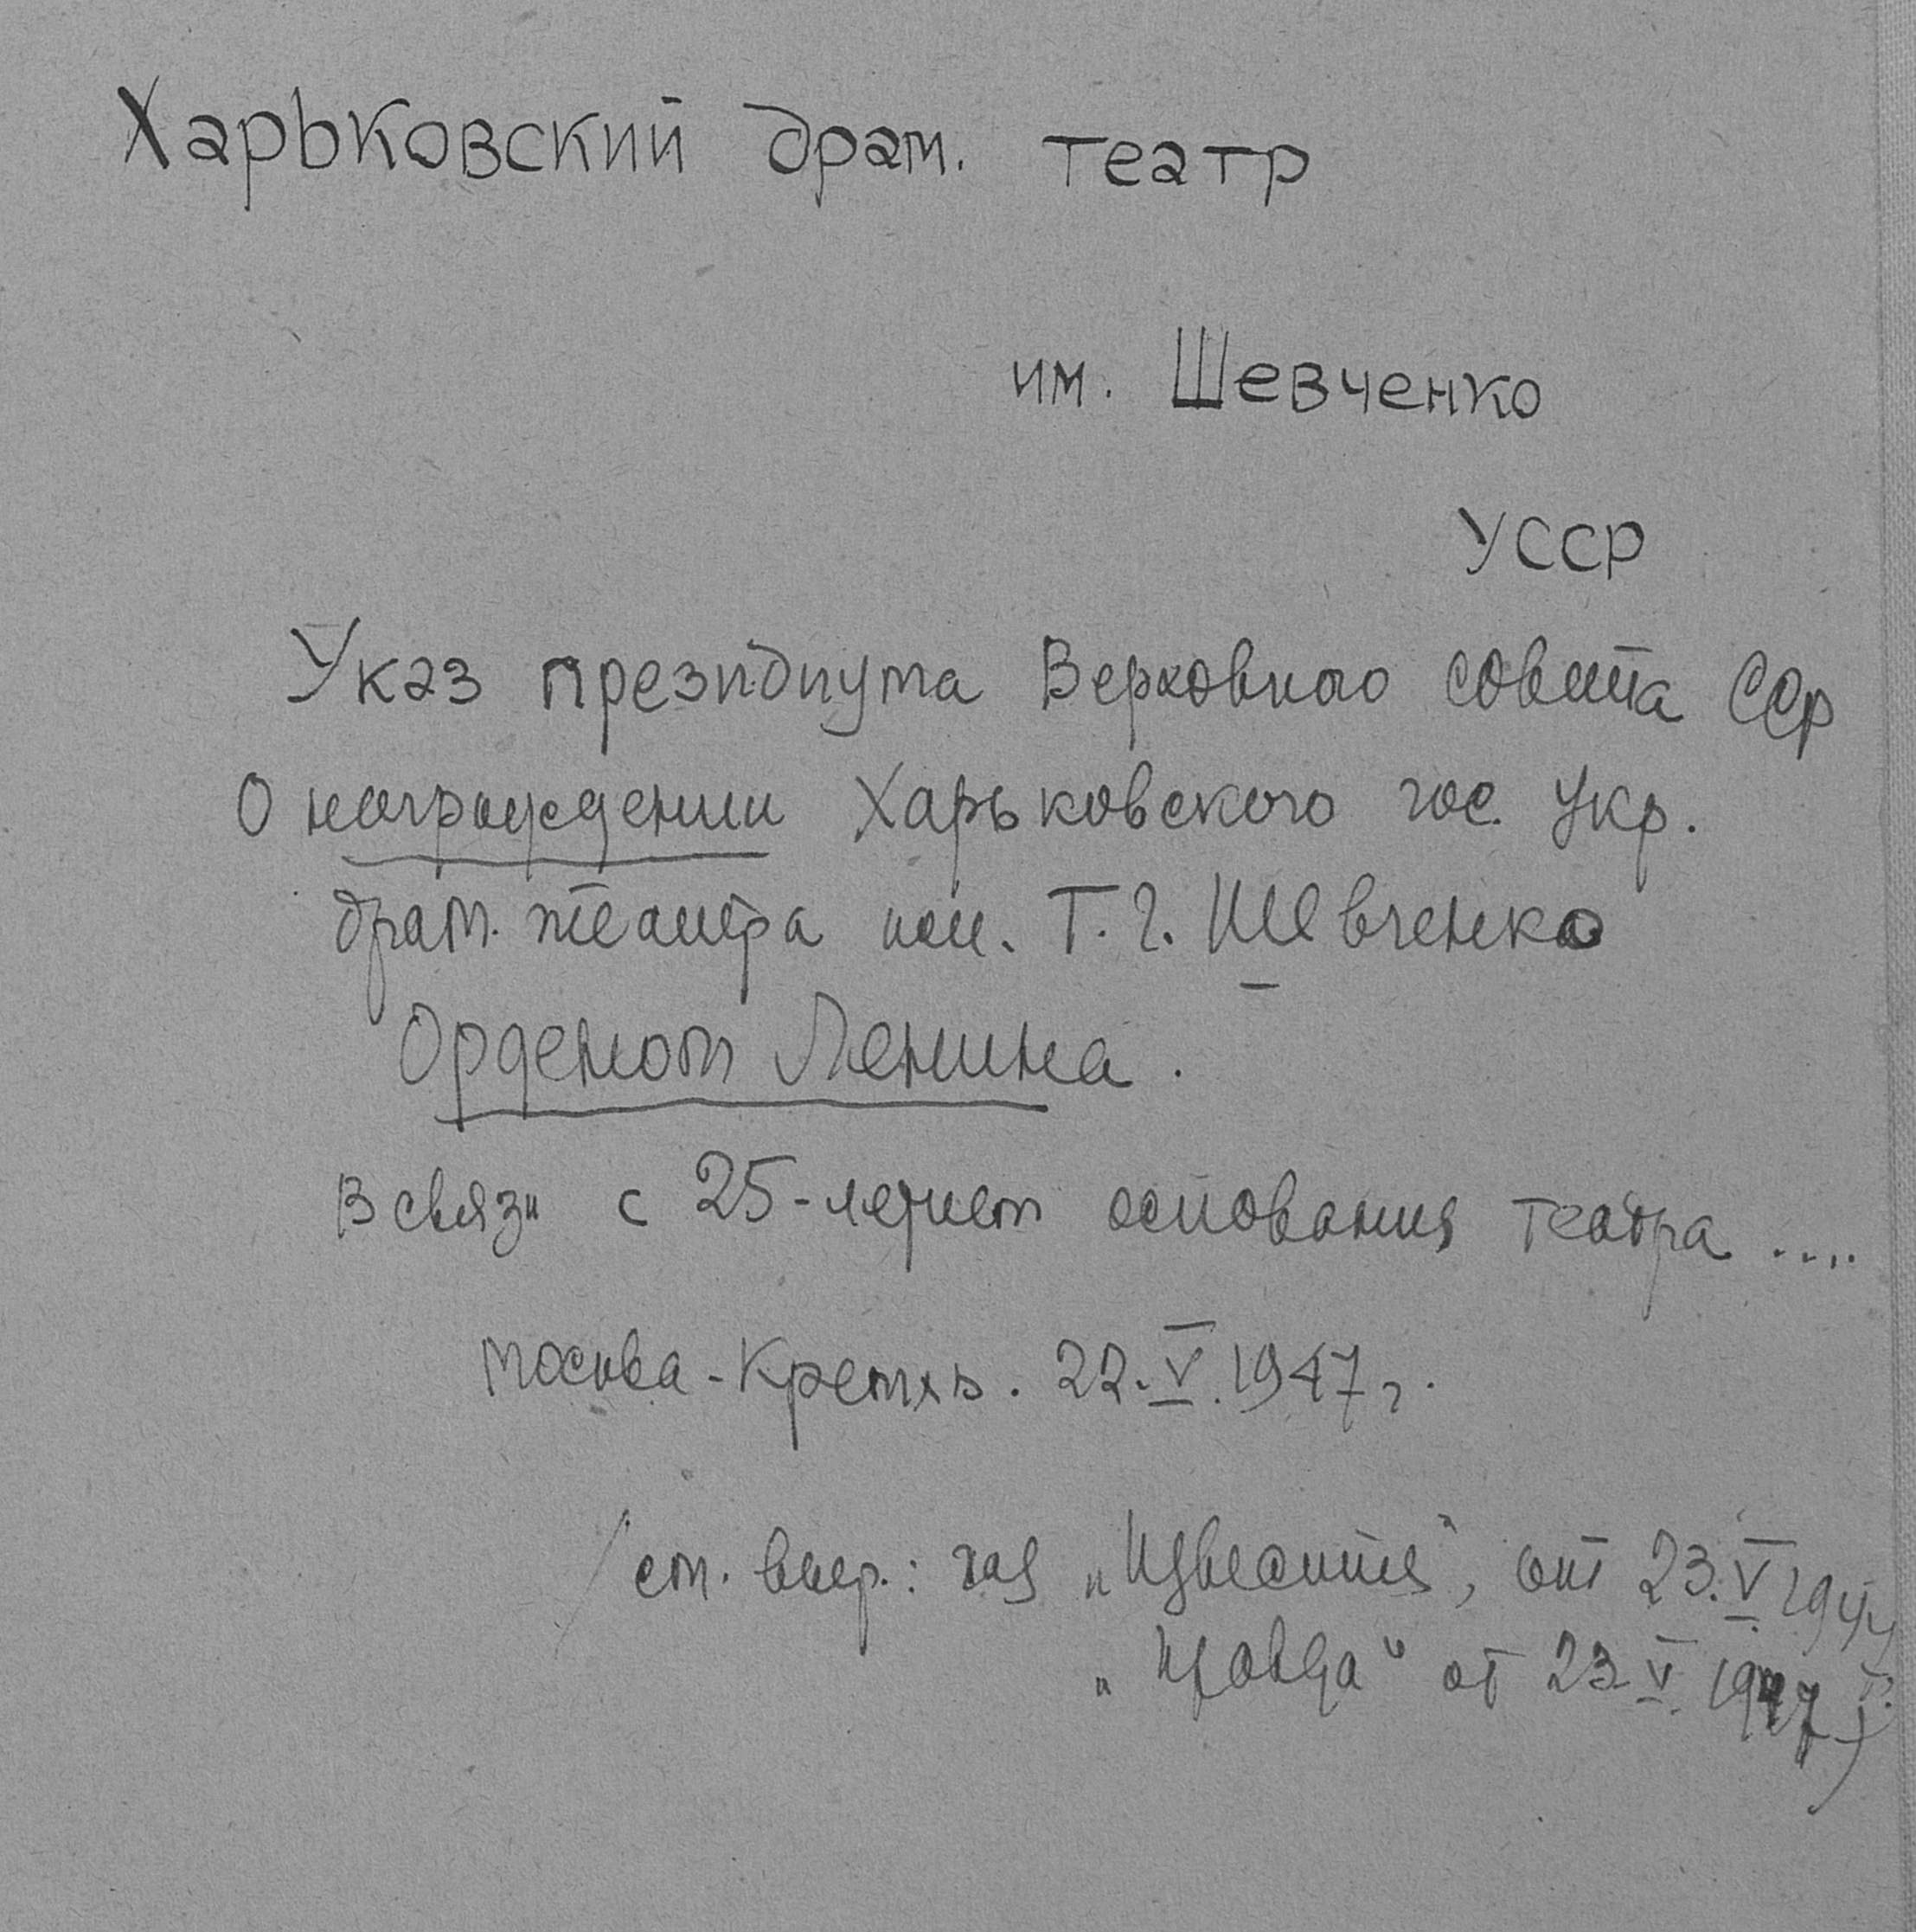 Харьковский драм. театр
им. Шевченко
УССР
Указ президиума Верховного совета ССР
О награждении Харьковского гос. Укр.
драм. театра им. Т. Г. Шевченко
Орденом Ленина.
В связи с 25-летием основания театра ....
Москва-Кремль. 22.V.1947 г.
см. газ „Известия", от 23.V 1947
„Правда" от 23.V.1947 г.)